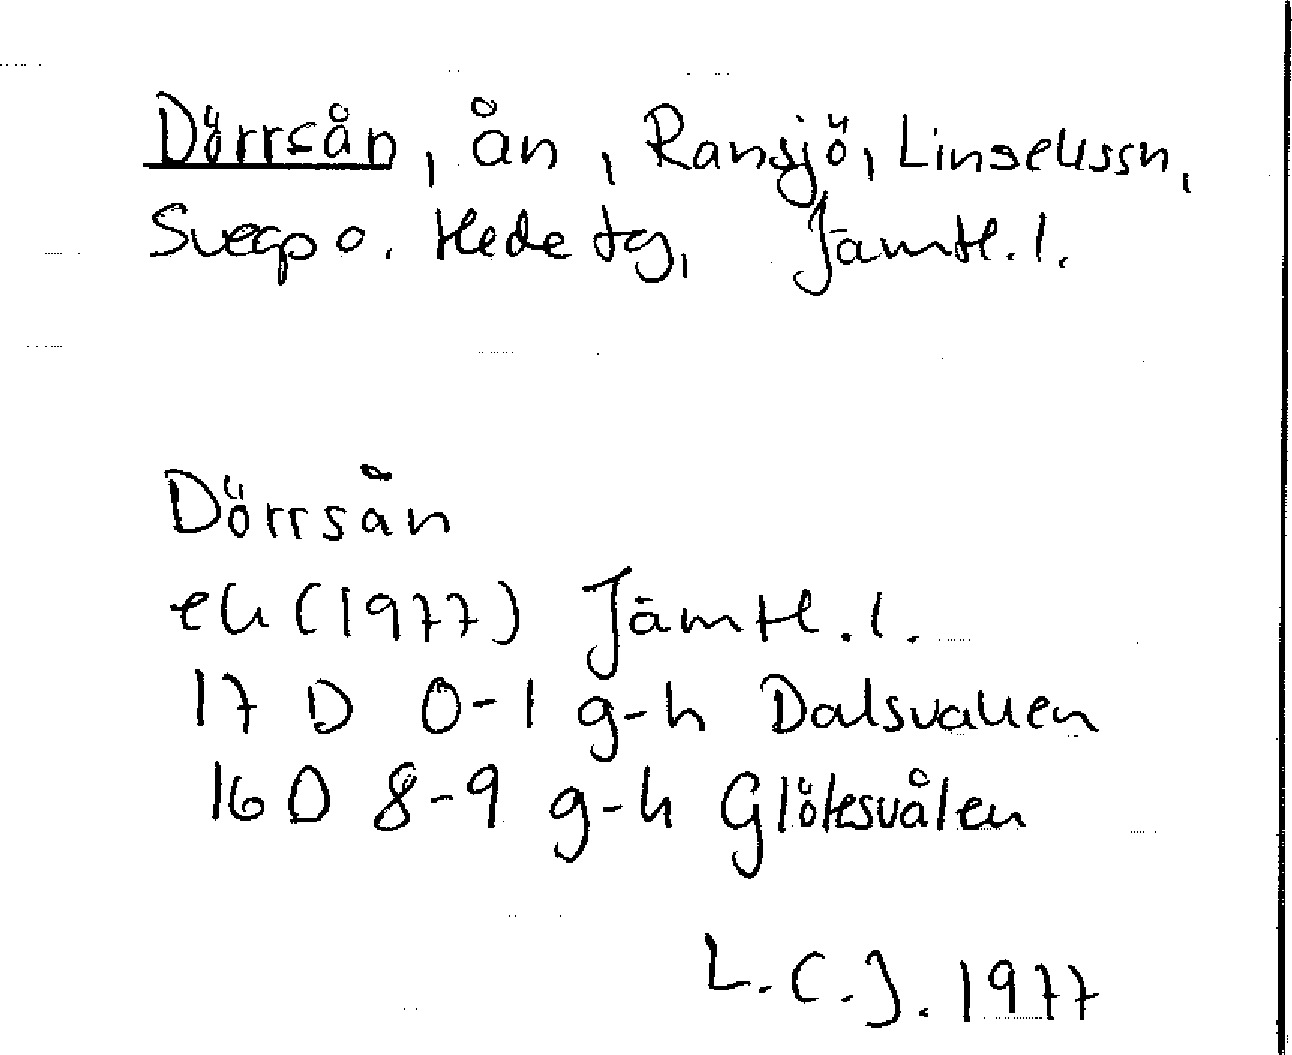 Dörrsån, ån, Ransjö, Linsellssn,
Svegp o. Hede tg, Jämtl. l.
Dörrsån
ek (1977) Jämtl. l.
17 D 0-1 g-h Dalsvallen
16 D 8-9 g-h Glötesvålen
L.C.J. 1977